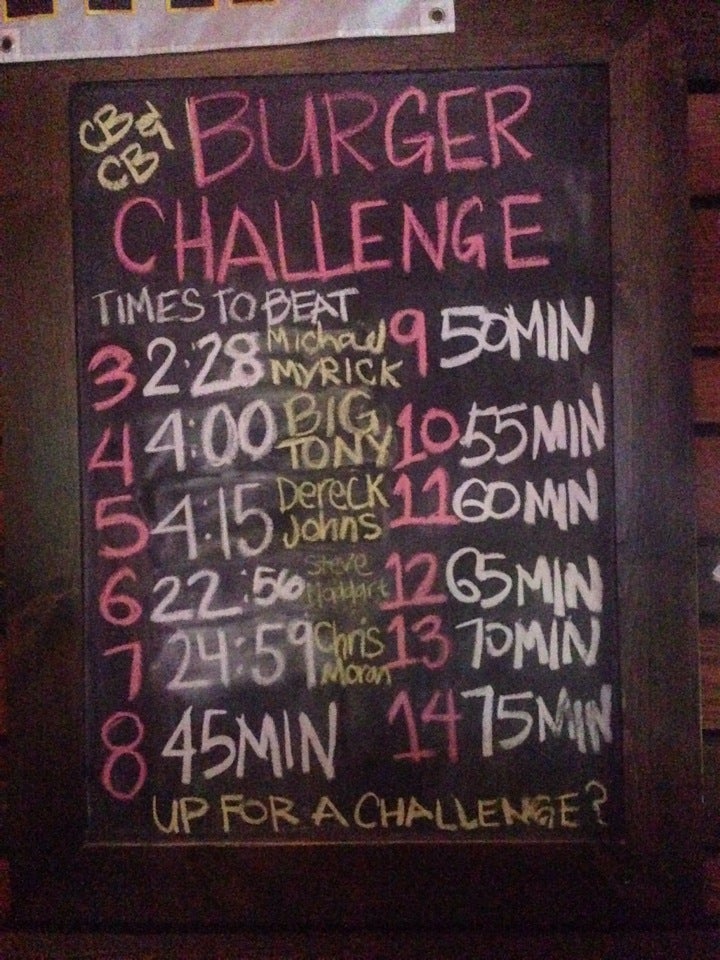 CB &
CB
BURGER
CHALLENGE
TIMES TO BEAT
3 2:28 Michael
MYRICK
4 4:00 BIG
TONY
5 4:15 Dereck
Johns
6 22:56 Steve
7 24:59 Chris
Moran
8 45MIN
9 50MIN
10 55MIN
11 60MIN
12 65MIN
13 70MIN
14 75MIN
UP FOR A CHALLENGE?